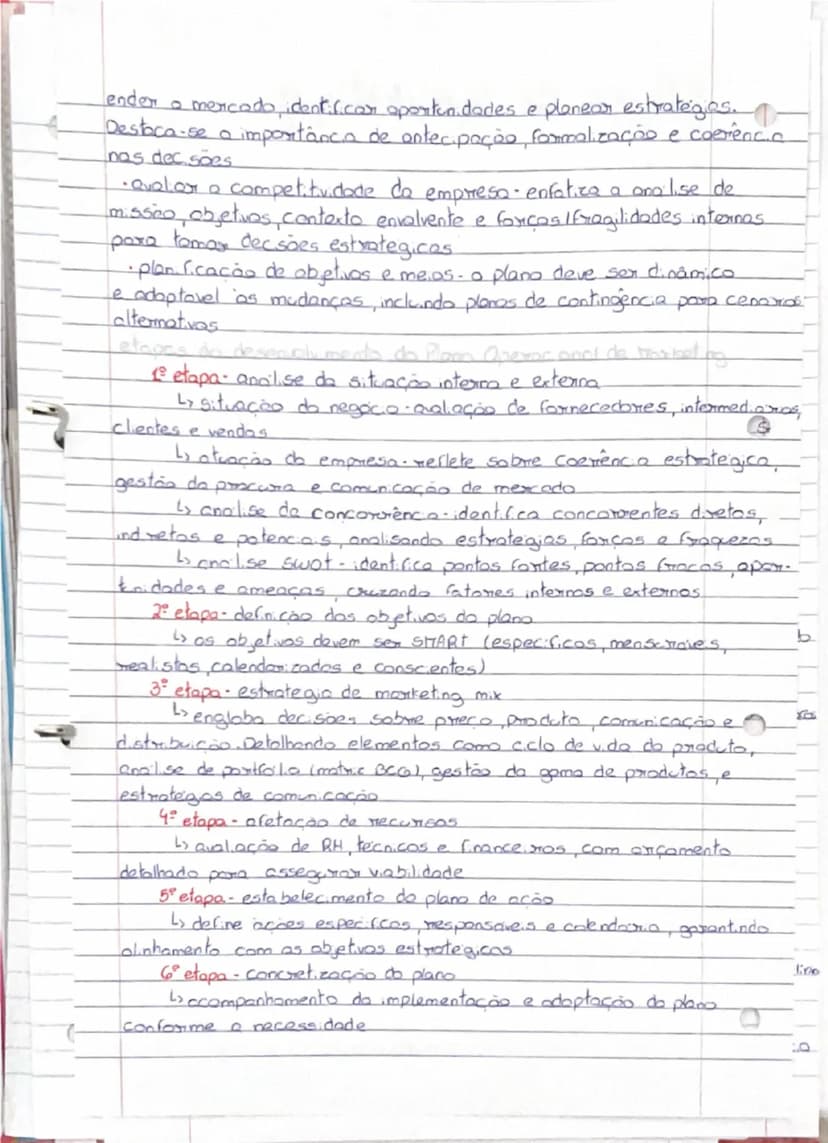 ender o mercado, identificar oportunidades e planear estratégias.
Destaca-se a importância de antecipação, formalização e coerência
nas decisões
· avaliar a competitividade da empresa - enfatiza a analise de
missão, objetivos, contexto envolvente e forças/fragilidades internas
para tomar decisões estrategicas
· planificação de objetivos e meios - o plano deve ser dinâmico
e adaptavel às mudanças, incluindo planos de contingência para cenarios
alternativos
etapas do desenvolvimento do Plano Operacional de Marketing
1º etapa - análise da situação interna e externa
↳ situação do negócio - avaliação de fornecedores, intermediarios,
clientes e vendas
↳ atuação da empresa - reflete sobre coerência estratégica,
gestão da procura e comunicação de mercado
↳ analise da concorrência - identifica concorrentes diretos,
indiretos e potenciais, analisando estratégias, forças e fraquezas
↳ análise swot - identifica pontos fortes, pontos fracos, opor-
tunidades e ameaças, cruzando fatores internos e externos
2º etapa - definição dos objetivos do plano
↳ os objetivos devem ser SMART (especificos, mensuraveis,
realistas, calendarizados e conscientes)
3º etapa - estrategia de marketing mix
↳ engloba decisões sobre preço, produto, comunicação e
distribuição. Detalhando elementos como ciclo de vida do produto,
análise de portfólio (matriz BCG), gestão da gama de produtos, e
estratégias de comunicação
4º etapa - afetação de recursos
↳ avaliação de RH, técnicos e financeiros, com orçamento
detalhado para assegurar viabilidade
5º etapa - estabelecimento do plano de ação
↳ define ações especificas, responsáveis e calendário, garantindo
alinhamento com os objetivos estratégicos
6º etapa - concretização do plano
↳ acompanhamento da implementação e adaptação do plano
conforme a necessidade